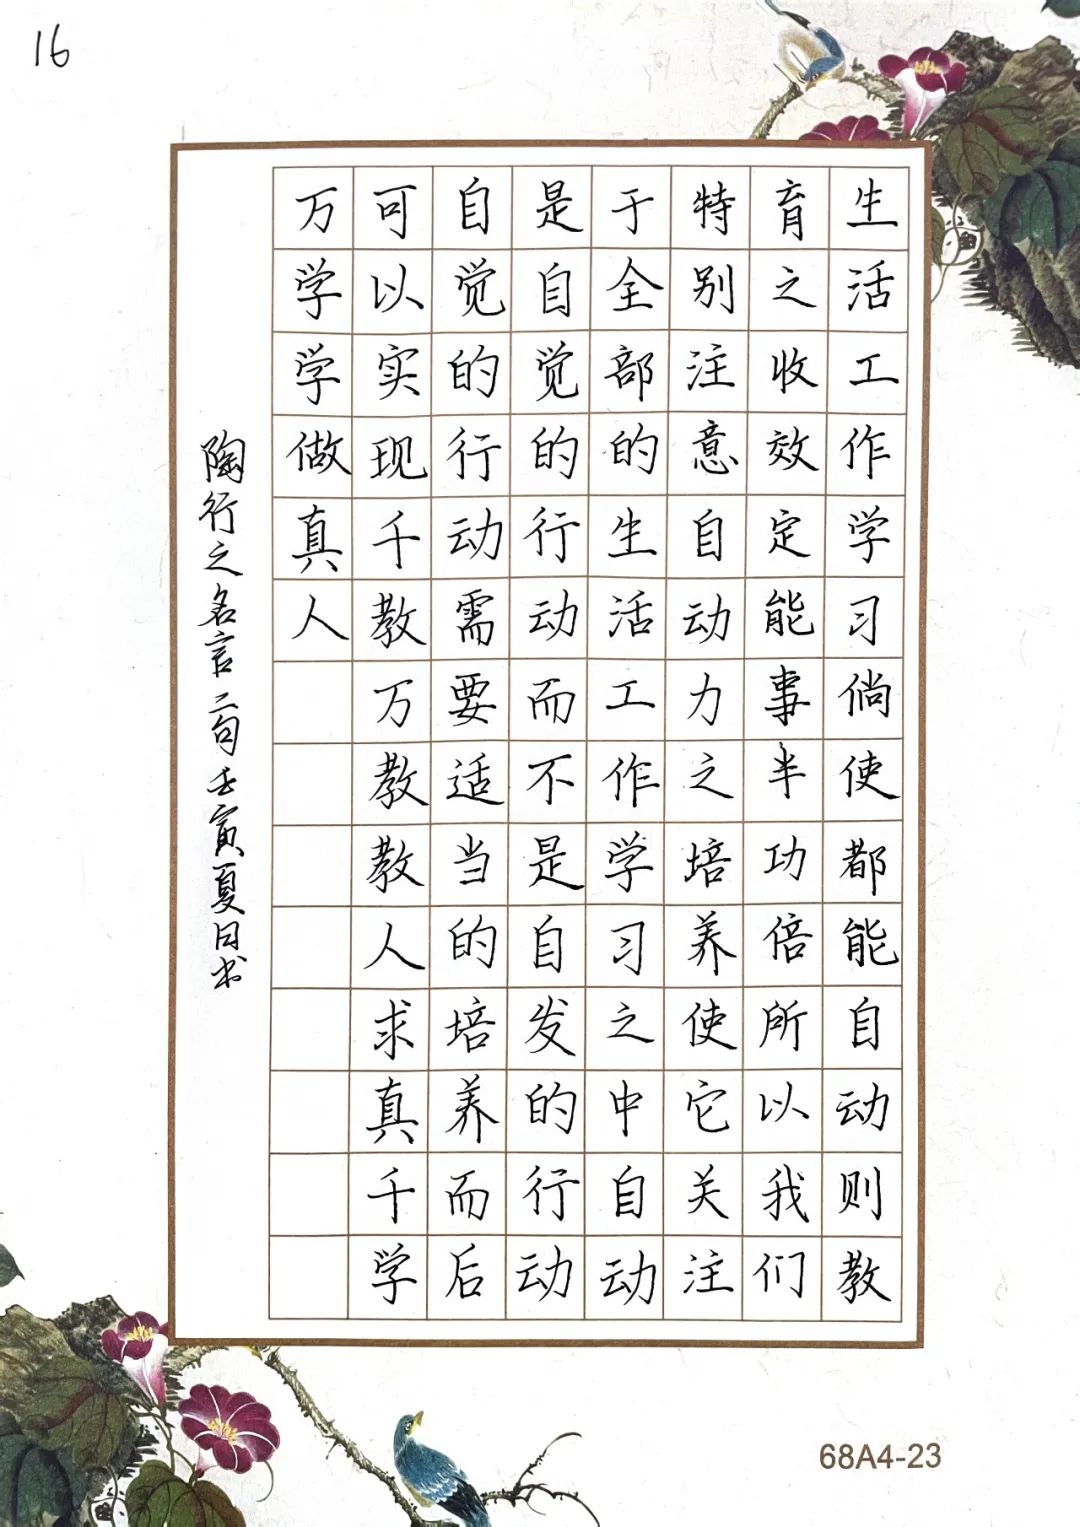 16
生活工作学习倘使都能自动则教
育之收效定能事半功倍所以我们
特别注意自动力之培养使它关注
于全部的生活工作学习之中自动
是自觉的行动而不是自发的行动
自觉的行动需要适当的培养而后
可以实现千教万教教人求真千学
万学学做真人
陶行之名言二句壬寅夏日书
68A4-23